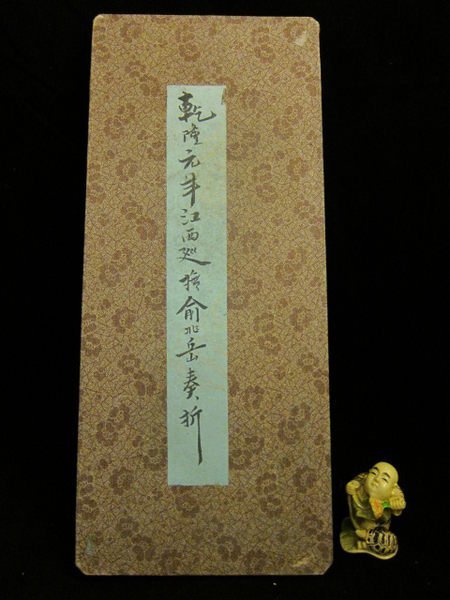 乾隆元年江西廵撫俞兆岳奏折